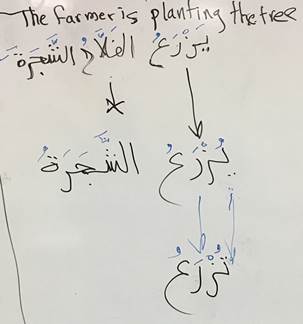 The farmer is planting the tree
يَزْرَعُ الفَلاَّحُ الشَّجَرَةَ
يُزْرَعُ الشَّجَرَةُ
تُزْرَعُ